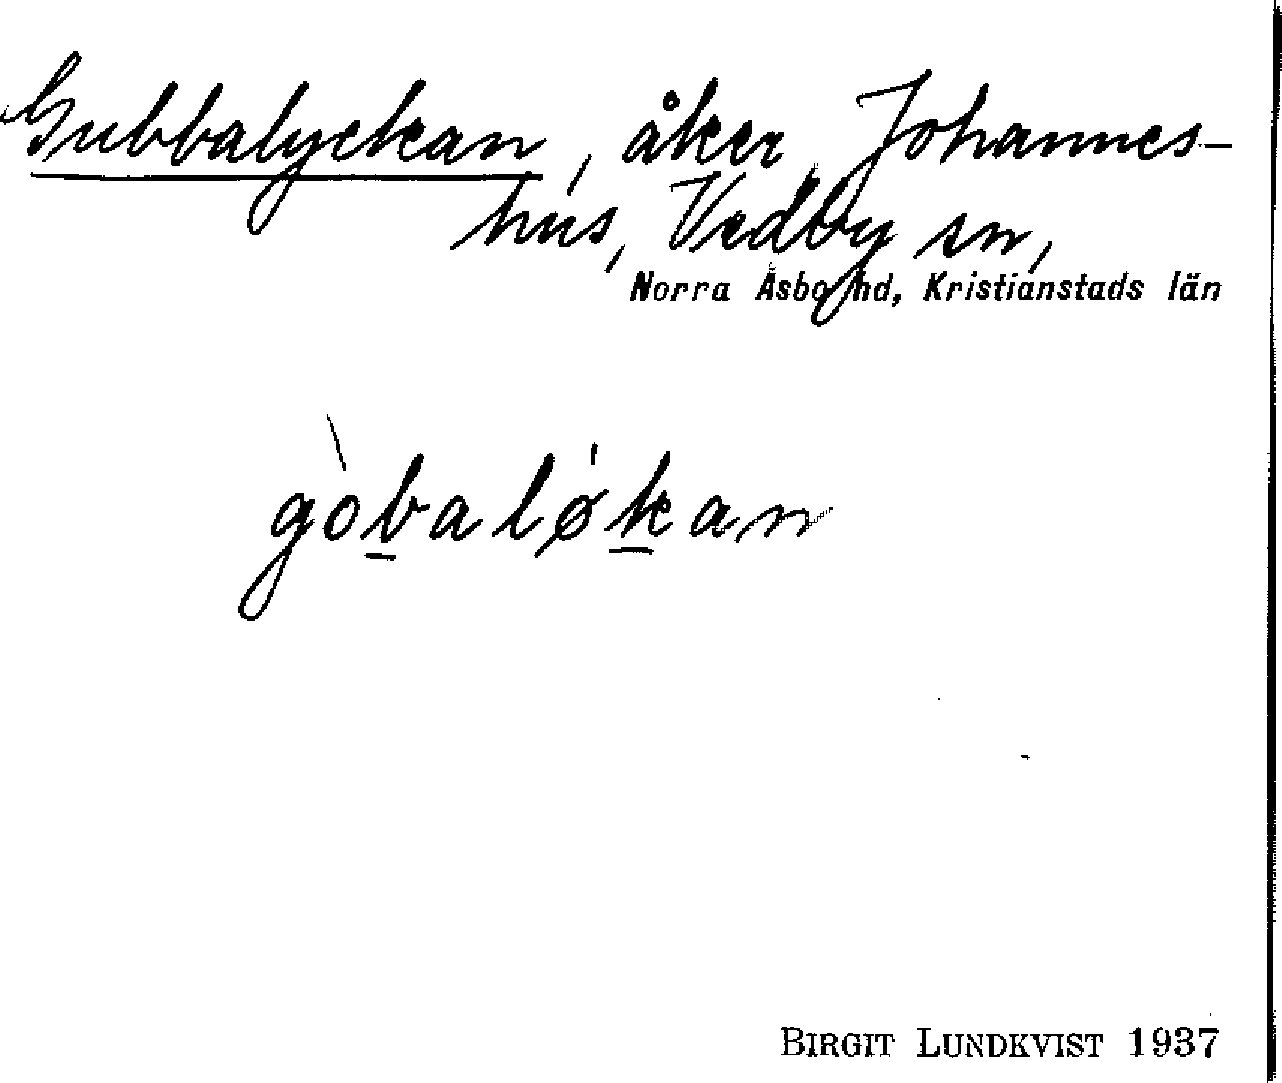 Gubbalyckan, åker Johannes-
hus, Vedby sn,
Norra Åsbo hd, Kristianstads län
gòbaløkan
BIRGIT LUNDKVIST 1937